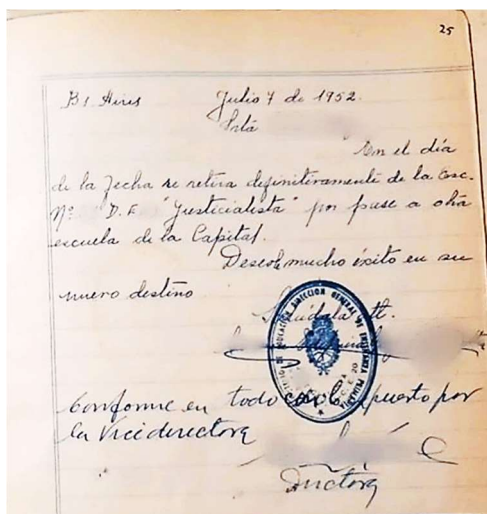 25
Bs. Aires Julio 7 de 1952.
Srta
En el día
de la fecha se retira definitivamente de la Esc.
Nº D.E "Justicialista" por pase a otra
escuela de la Capital.
Deseole mucho éxito en su
nuevo destino
Salúdala att.
DIRECCION GENERAL DE ENSEÑANZA PRIMARIA
Conforme en todo con lo expuesto por
la Vicedirectora
Directora